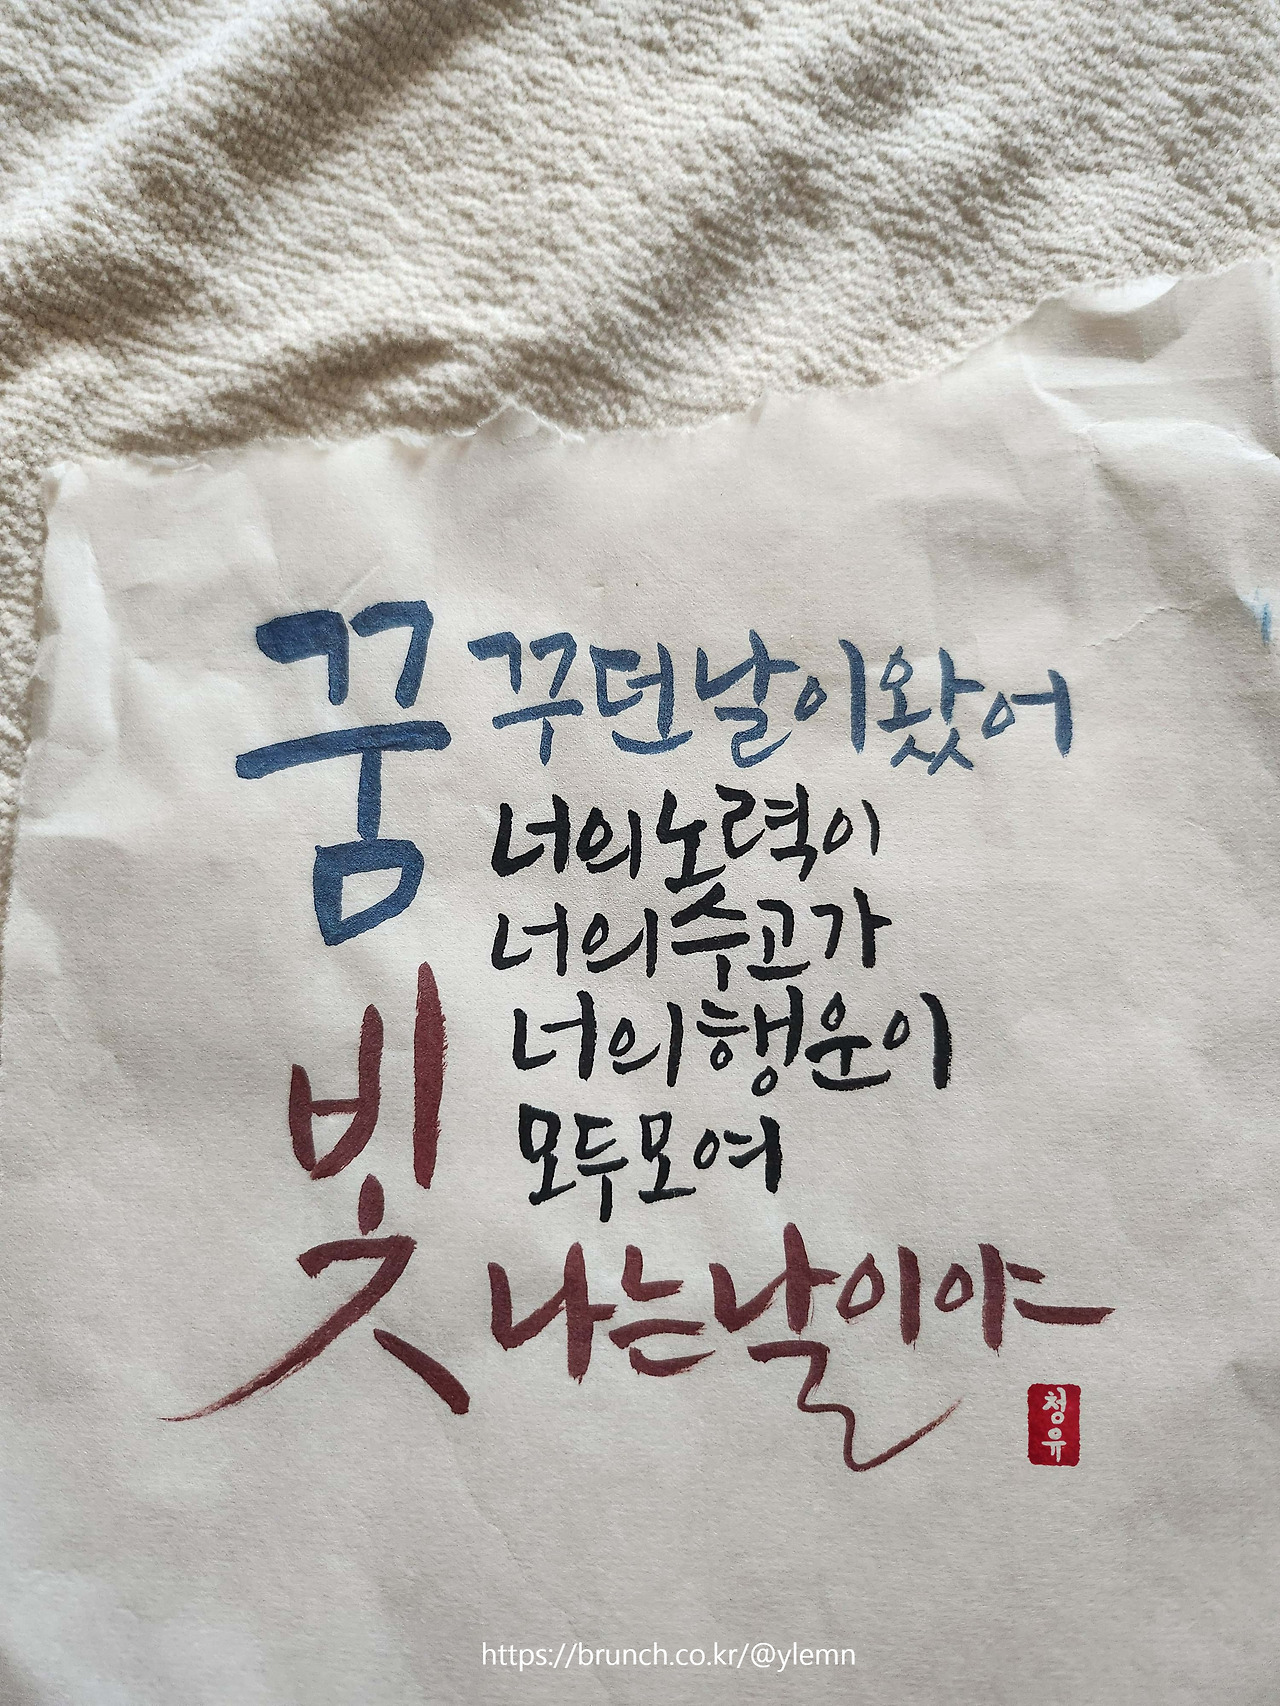 꿈 꾸던 날이 왔어
너의 노력이
너의 수고가
너의 행운이
모두 모여
빛 나는 날이야
청유
https://brunch.co.kr/@ylemn